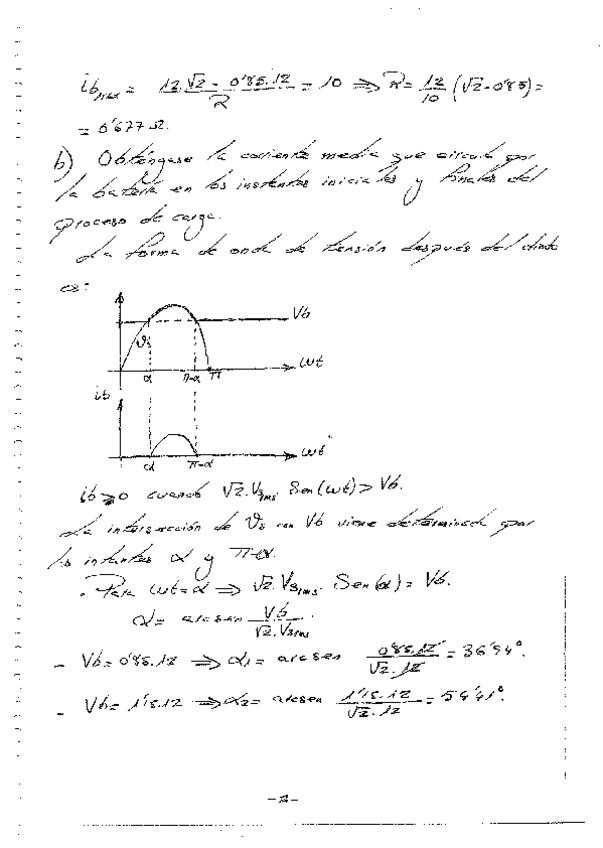 ibmax = 12·√2 - 0'85·12 / R = 10 ⇒ R = 12/10 (√2 - 0'85) =
= 0'677 Ω.
b) Obténgase la corriente media que circula por
la batería en los instantes iniciales y finales del
proceso de carga.
La forma de onda de tensión después del diodo
es:
Vb
Vs
α π-α π ωt
ib
α π-α ωt
ib ≥ 0 cuando √2·Vsrms Sen(ωt) > Vb.
La intersección de Vs con Vb viene determinada por
los intantes α y π-α.
- Para ωt = α ⇒ √2·Vsrms Sen(α) = Vb.
α = arcsen Vb / √2·Vsrms
- Vb = 0'85·12 ⇒ α1 = arcsen 0'85·12 / √2·12 = 36'94°.
- Vb = 1'15·12 ⇒ α2 = arcsen 1'15·12 / √2·12 = 54'41°.